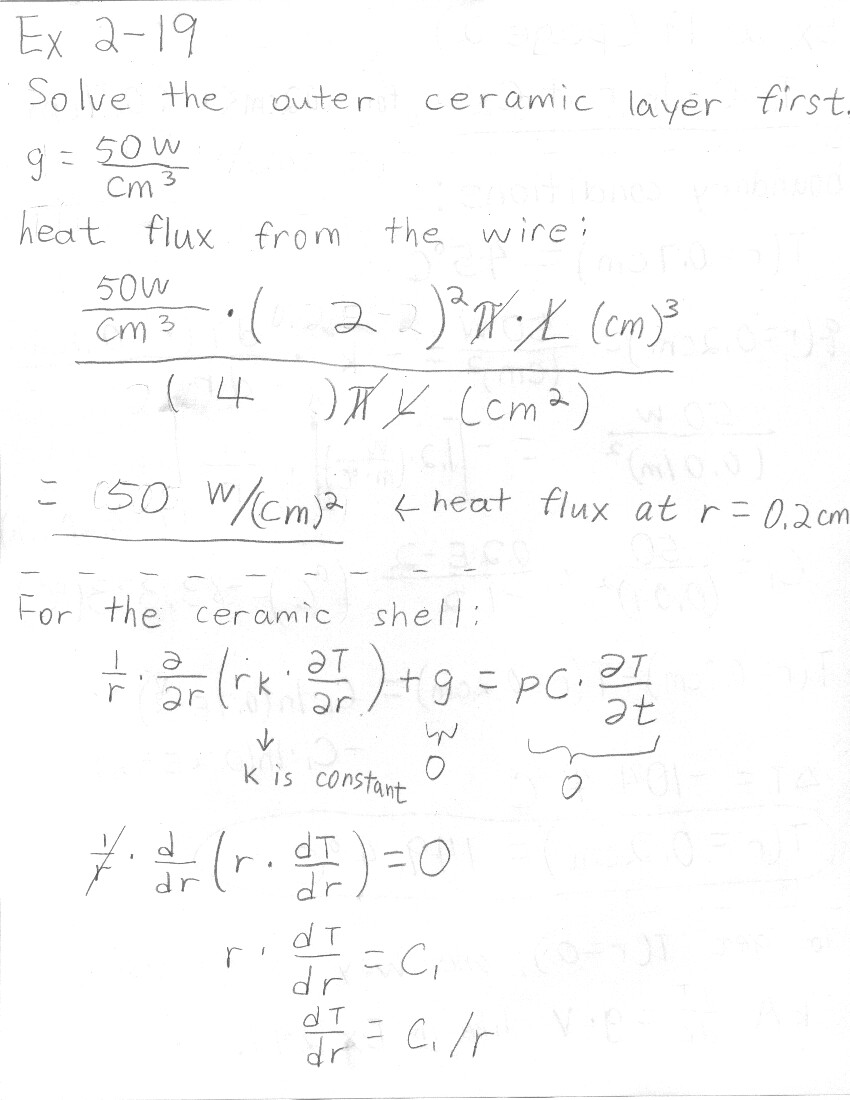 Ex 2-19
Solve the outer ceramic layer first.
g = 50W/cm³
heat flux from the wire:
50W/cm³ · ( 2 )² π · L (cm)³
( 4 ) π L (cm²)
= 50 W/(cm)² ← heat flux at r = 0.2cm
For the ceramic shell:
1/r · ∂/∂r (rk · ∂T/∂r) + g = ρC · ∂T/∂t
↓
k is constant 0 0
1/r · d/dr (r · dT/dr) = 0
r · dT/dr = C₁
dT/dr = C₁/r